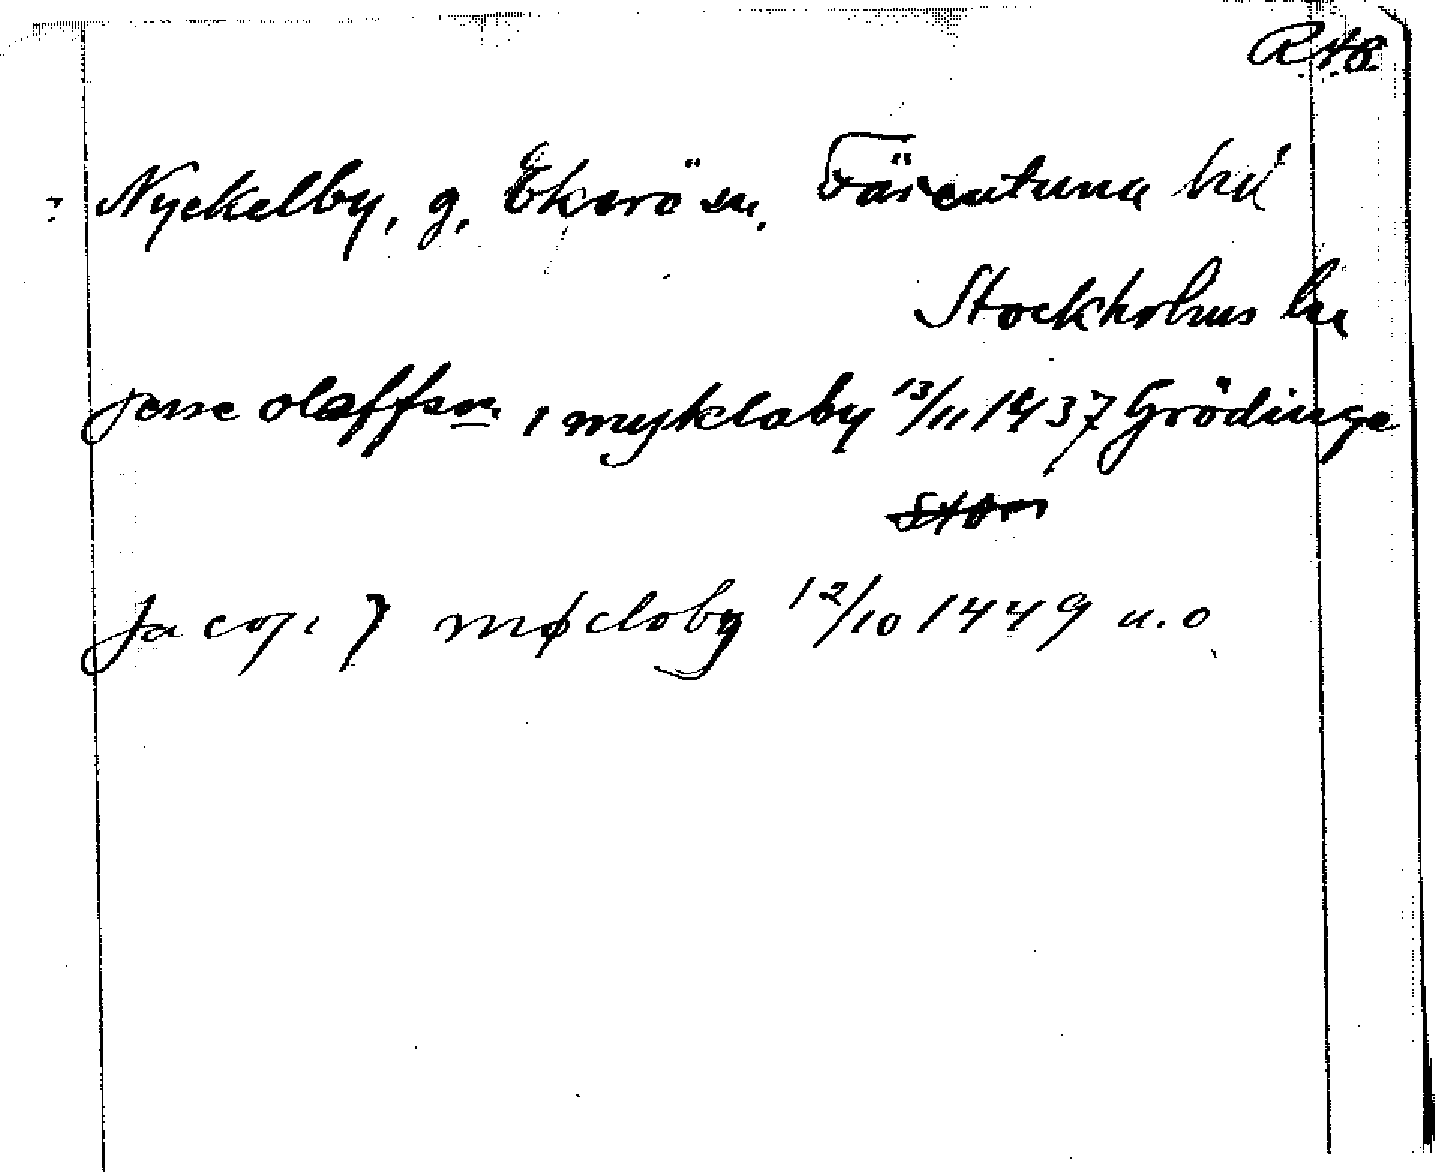 R.A.P.
Nyckelby, g. Ekerö sn. Färentuna hd
Stockholms län
jense olaffson i myklaby 13/11 1437 Grödinge
Sto
Jacop i møcloby 12/10 1449 u.o